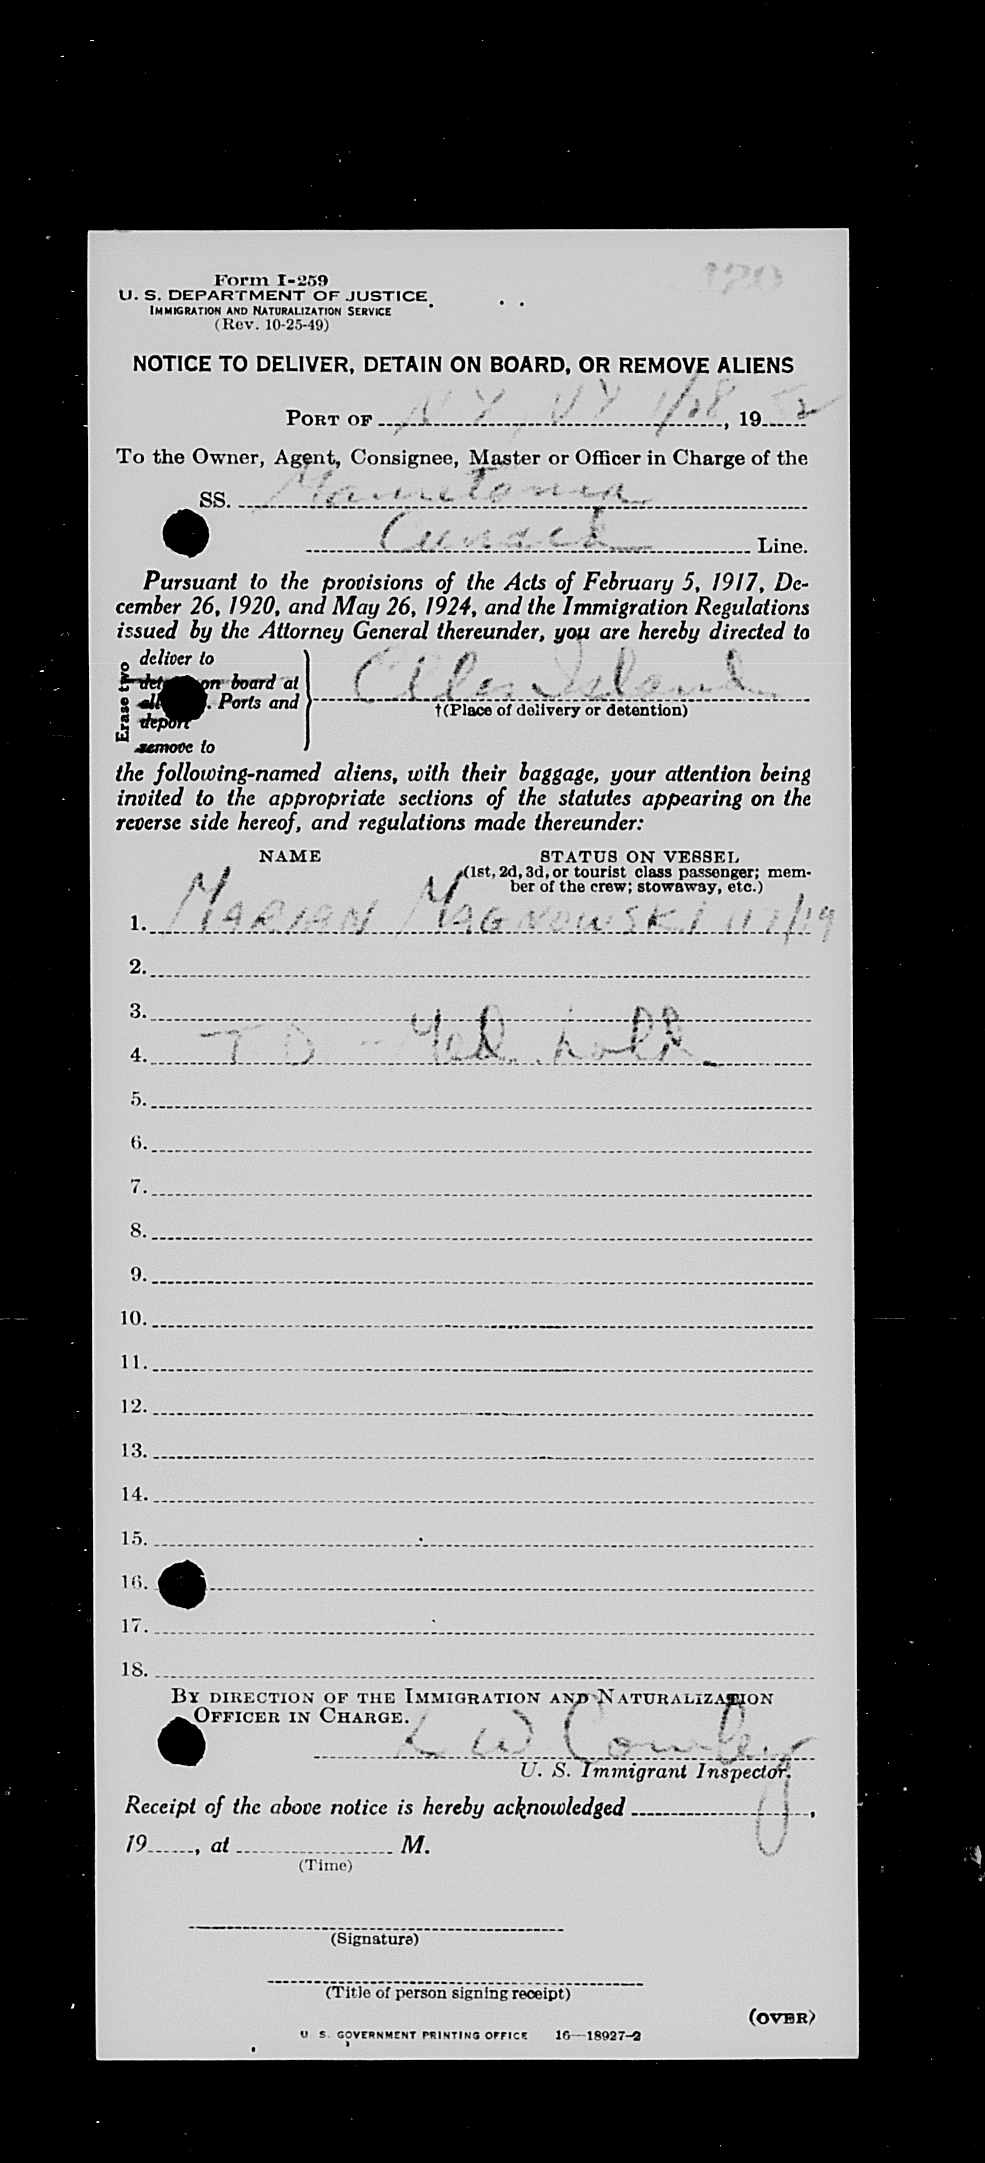 Form I-259
U. S. DEPARTMENT OF JUSTICE
IMMIGRATION AND NATURALIZATION SERVICE
(Rev. 10-25-49)
NOTICE TO DELIVER, DETAIN ON BOARD, OR REMOVE ALIENS
PORT OF N Y, N Y 1/28, 1952
To the Owner, Agent, Consignee, Master or Officer in Charge of the
SS. Mauretania
Cunard Line.
Pursuant to the provisions of the Acts of February 5, 1917, De-
cember 26, 1920, and May 26, 1924, and the Immigration Regulations
issued by the Attorney General thereunder, you are hereby directed to
Erase two
deliver to
on board at
Ports and
deport
remove to
Ellis Island
†(Place of delivery or detention)
the following-named aliens, with their baggage, your attention being
invited to the appropriate sections of the statutes appearing on the
reverse side hereof, and regulations made thereunder:
NAME STATUS ON VESSEL
(1st, 2d, 3d, or tourist class passenger; mem-
ber of the crew; stowaway, etc.)
1. MARIAN MAGNOWSKI 117/19
2.
3.
4. T D - Med hold
5.
6.
7.
8.
9.
10.
11.
12.
13.
14.
15.
16.
17.
18.
BY DIRECTION OF THE IMMIGRATION AND NATURALIZATION
OFFICER IN CHARGE.
L W Cowley
U. S. Immigrant Inspector.
Receipt of the above notice is hereby acknowledged ,
19 , at M.
(Time)
(Signature)
(Title of person signing receipt)
(OVER)
U. S. GOVERNMENT PRINTING OFFICE 16—18927-2